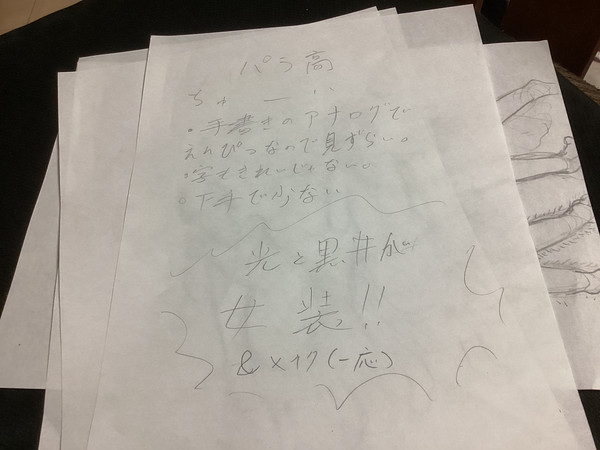 パラ高
ちゅーい
・手書きのアナログで
えんぴつなので見ずらい。
・字もきれいじゃない。
・下手で少ない
光と黒井が
女装!!
&メイク(一応)